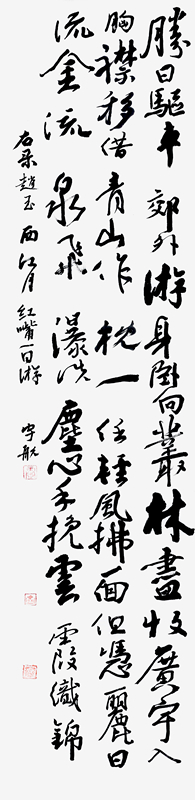 勝日驅車郊外游身卧向叢林盡收廣宇入
胸襟移借青山作枕一任輕風拂面但憑麗日
流金流泉飛瀑洗塵心手挽雲霞織錦
右录趙玉西江月紅嘴一日游 宇航